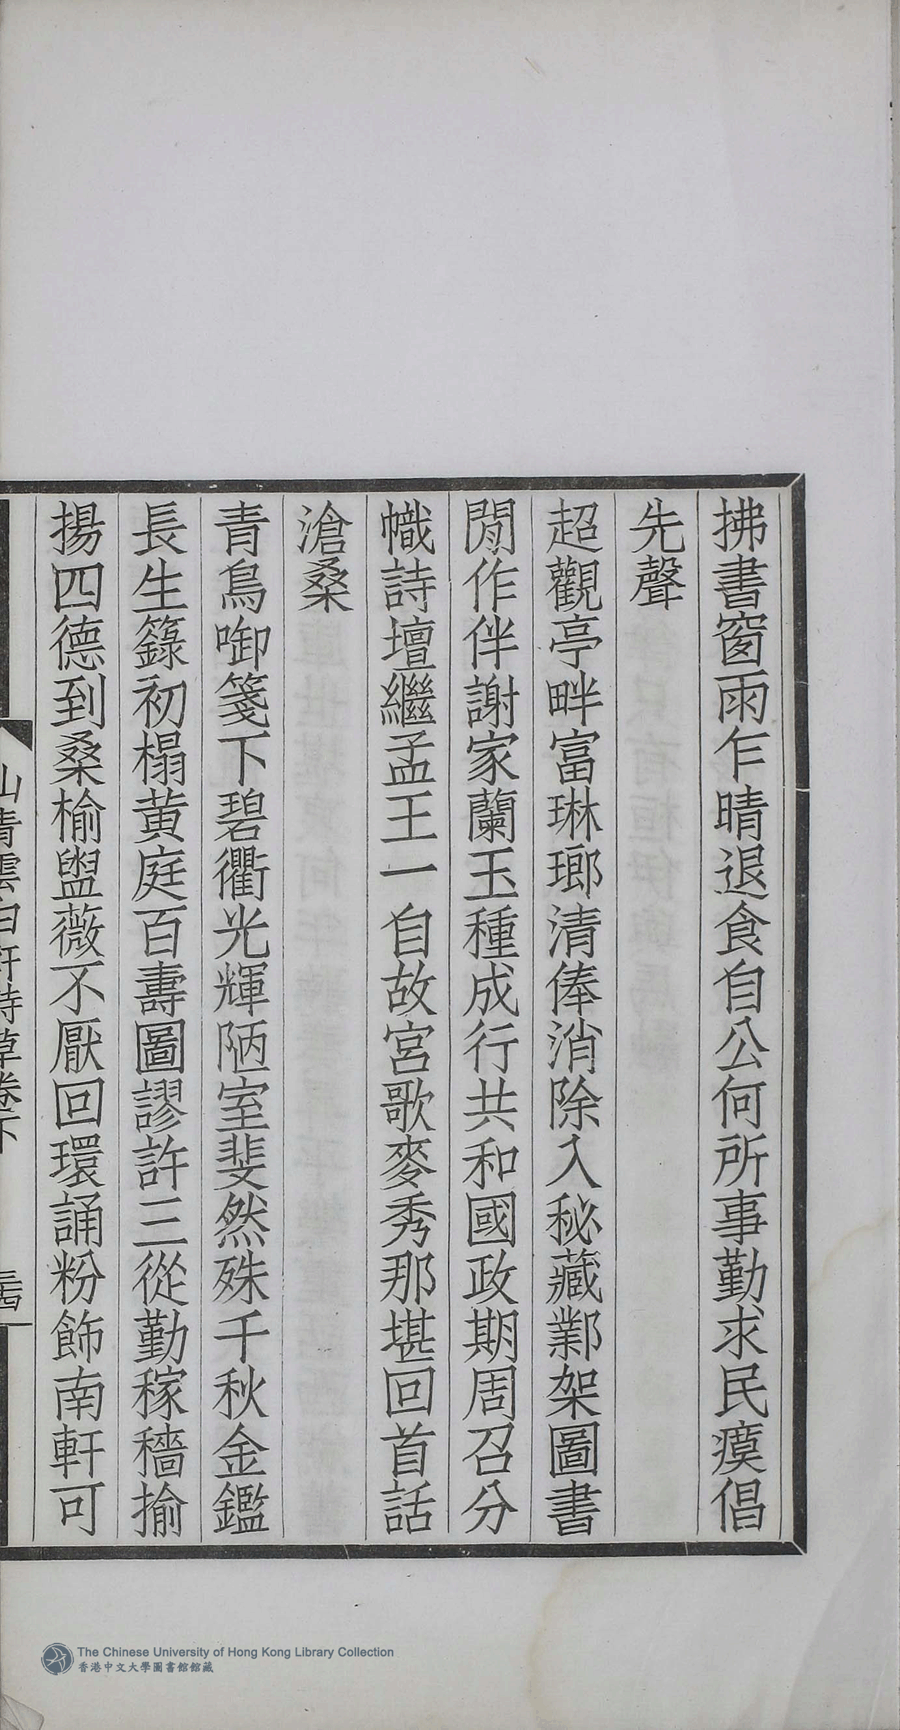 拂書窗雨乍晴退食自公何所事勤求民瘼倡
先聲
超觀亭畔富琳瑯清俸消除入秘藏鄴架圖書
閒作伴謝家蘭玉種成行共和國政期周召分
幟詩壇繼孟王一自故宮歌麥秀那堪回首話
滄桑
青鳥啣箋下碧衢光輝陋室斐然殊千秋金鑑
長生籙初榻黃庭百壽圖謬許三從勤稼穡揄
揚四德到桑榆盥薇不厭回環誦粉飾南軒可
山青雲白軒詩草卷下
The Chinese University of Hong Kong Library Collection
香港中文大學圖書館館藏